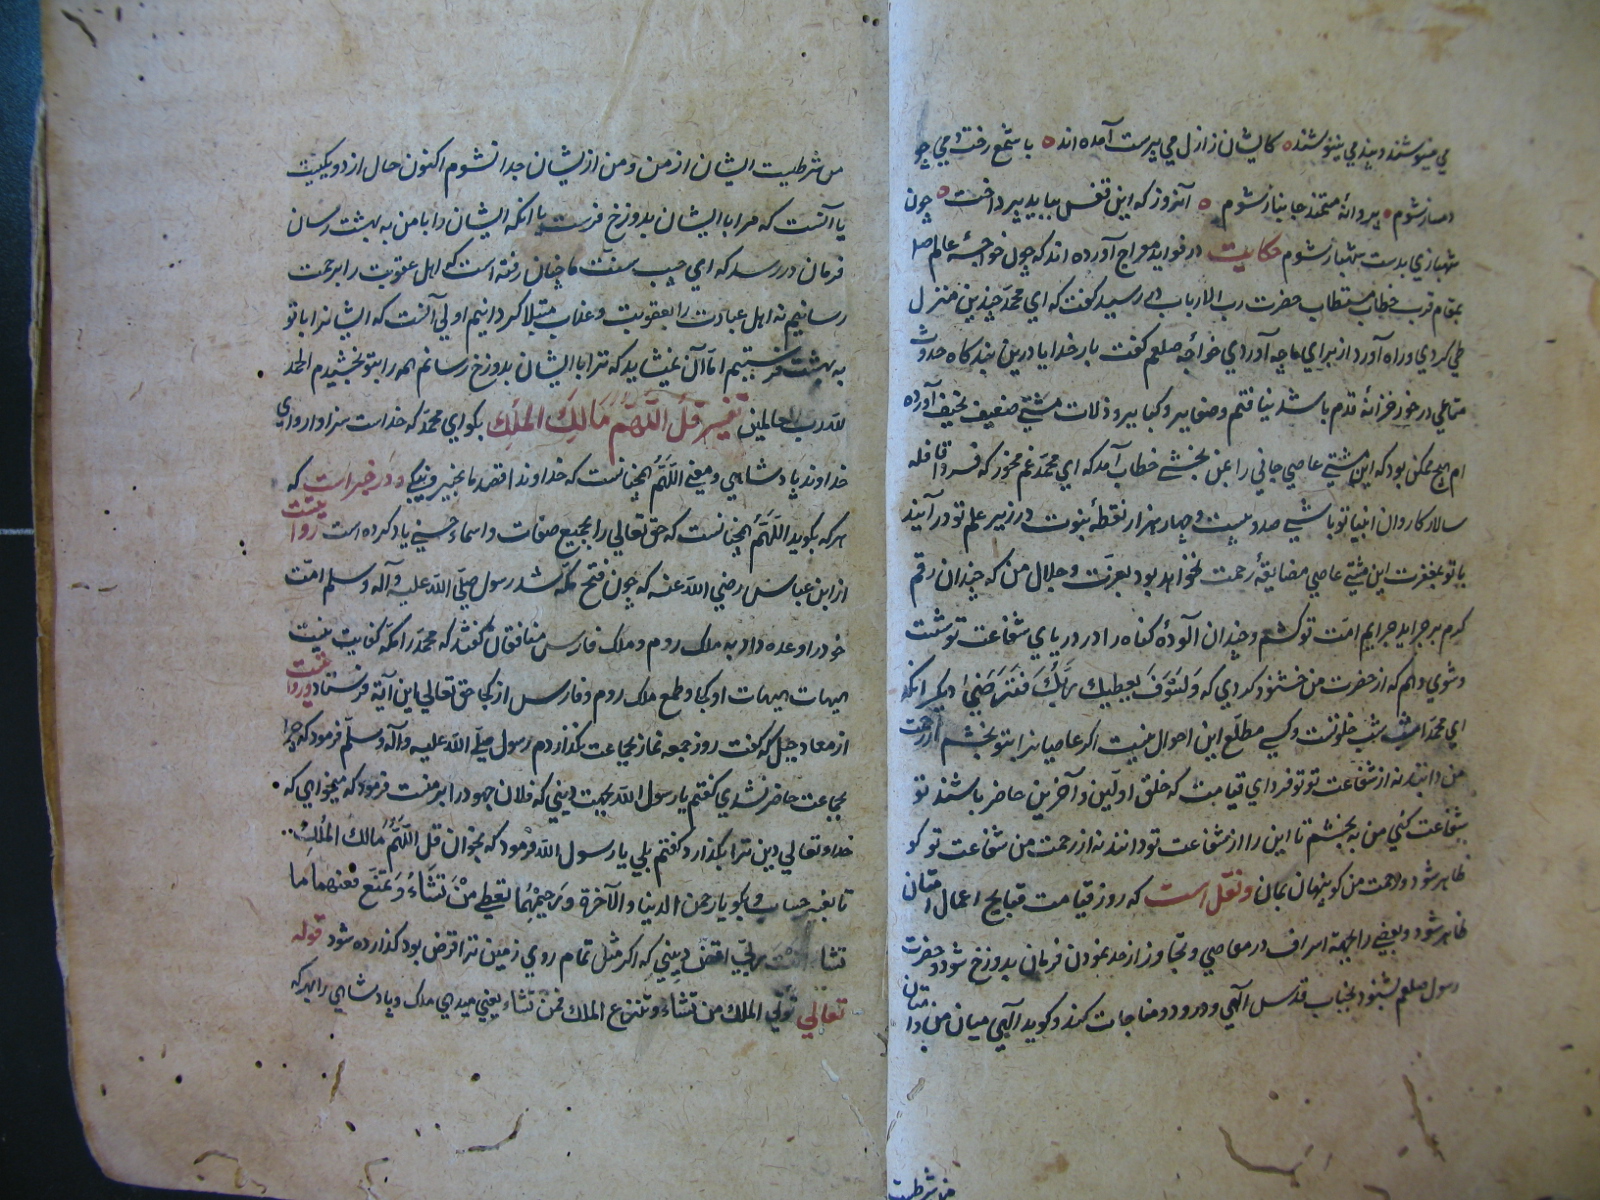 می مینوشند و پند می نینوشنده کایشان ز ازل می پرست آمده اند ه با شمع رخت دمی چو
دمساز شوم ه پروانهٔ مستمند جانباز شوم ه آنروز که این قفس بباید پرداخت ه چون
شهبازی بدست شهباز شوم حکایت در فواید معراج آورده اند که چون خواجهٔ عالم صلعم
بمقام قرب خطاب مستطاب حضرت رب الارباب رسید گفت که ای محمد چندین منزل
طی کردی و راه آورد از برای ما چه آوردی خواجه صلعم گفت بار خدایا درین بندگاه حدوث
متاعی در خور خزانهٔ قدم باشد نیافتم و صغایر و کبایر و ذلات مشتے ضعیف نحیف آورده
ام هیچ ممکن بود که این مشتے عاصی جانی را بمن بخشے خطاب آمد که ای محمد غم مخور که فردا قافله
سالار کاروان انبیا تو باشے صد و بیست و چهار هزار نقطهٔ نبوت در زیر علم تو در آیند
با تو بمغفرت این مشتے عاصی مضایقهٔ رحمت نخواهد بود بعزت و جلال من که چندان رقم
کرم بر جراید جرایم امت تو کشم و چندان آلودهٔ گناه را در دریای شفاعت تو شست
و شوی دهم که از حضرت من خشنود گردی که وَلَسَوْفَ یُعطیک رَبُّکَ فَتَرضیٰ دیگر آنکه
ای محمد امشب شب خلوتست و کسے مطلع این احوال نیست اگر عاصیانرا بتو بخشم از رحمت
من دانند نه از شفاعت تو تو فردای قیامت که خلق اولین و آخرین حاضر باشند تو
شفاعت کنی من به بخشم تا این را از شفاعت تو دانند نه از رحمت من شفاعت تو کو
ظاهر شو و رحمت من کو پنهان بمان و نقل است که روز قیامت قبایح اعمال امتان
ظاهر شود و بعضے را بجهة اسراف در معاصی و تجاوز از حد نمودن فرمان بدوزخ شود حضرت
رسول صلعم بشنود بجناب قدس الهی و درود و مناجات کند و گوید الهی میان من و امتان
من شرطیست
من شرطیست ایشان از من و من از یشان جدا نشوم اکنون حال از دو یکیست
یا آنست که مرا با ایشان بدوزخ فرست یا آنکه ایشان را با من به بهشت رسان
فرمان در رسد که ای حبیب سنت ما چنان رفته است که اهل عقوبت را برحمت
رسانیم نه اهل عبادت را بعقوبت و عذاب مبتلا گردانیم اولی آنست که ایشانرا با تو
به بهشت فرستیم اما آن نمیشاید که ترا با ایشان بدوزخ رسانم همه را بتو بخشیدم الحمد
لله رب العالمین تفسیر قُلِ اللَّهُمَّ مَالِکَ المُلْکِ بگو ای محمد که خداست سزاوار و ای
خداوند پادشاهی و معنے اللَّهُمَّ همچنانست که خداوندا قصد ما بخیر و نیکے و در خبر است که
هر که بگوید اللَّهُمَّ همچنانست که حق تعالی را بجمیع صفات و اسماء حسنے یاد کرده است روایتست
از ابن عباس رضی الله عنه که چون فتح مکه شد رسول صلی الله علیه و آله و سلم امت
خود را وعده داد به ملک روم و ملک فارس منافقان گفتند که محمد را مکه کفایت نیست
هیهات هیهات او کجا و طمع ملک روم و فارس از کجا حق تعالی این آیة فرستاد و روایتست
از معاد جبل که گفت روز جمعه نماز بجماعت نگذاردم رسول صلے الله علیه و آله وسلم فرمود که چرا
بجماعت حاضر نشدی گفتم یا رسول الله بجهت دینی که فلان جهود را بر منست فرمود که میخواهی که
خدا و تعالی دین ترا بگذارد گفتم بلی یا رسول الله فرمود که بخوان قل اللَّهُمَّ مَالِكَ المُلْكِ
تا بغیر حساب و بگو یا رحمن الدنیا و الآخرة و رحیمهما تعطی من تَشَاءُ وَ تَمْنَعُ منهما ما
تشاء اقض دینی که اگر مثل تمام روی زمین ترا قرض بود گذارده شود قوله
تعالی تؤتی الملك من تشاء و تنزع الملك ممن تشاء یعنی میدهی ملک و پادشاهی را بهر که